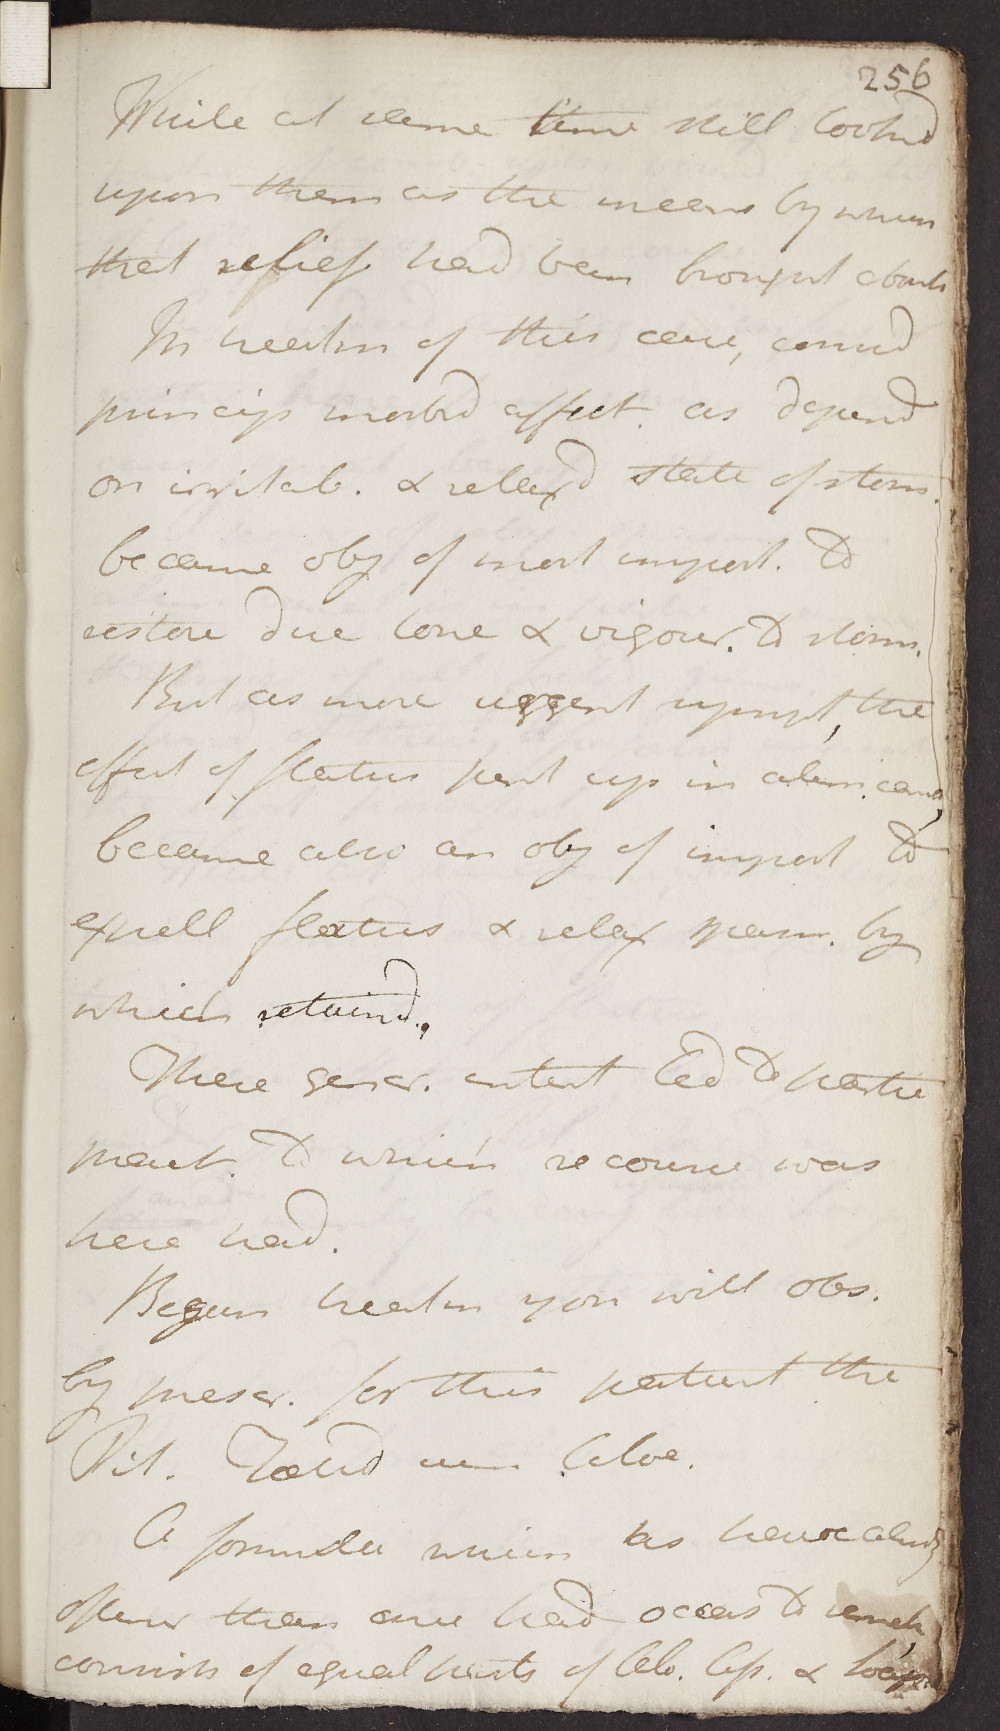 256
While at same time still lookd
upon them as the means by which
that relief had been brought about
In treatm of this case, considd
princip morbid affect. as depend
on irritab. & relaxd state of stom.
became obj of most import. To
restore due tone & vigour. To stom.
But as more urgent sympt, the
effect of flatus pent up in alim. canal,
became also an obj of import To
expell flatus & relax spasm. by
which retaind.
These gener. intent led To particu
pract. To which recourse was
here had.
Begun treatm you will obs.
by prescr. for this patient the
Pil. cum Aloe.
A formula which as have already
oftener than once had occas To remark,
consists of equal parts of Alo. &